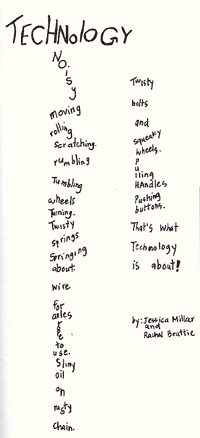 TECHNOLOGY
NOisy
moving
rolling
Scratching.
rumbling
Tumbling
wheels
Turning.
Twisty
springs
Springing
about.
wire
for
axles
to
use.
Slimy
oil
on
rusty
chain.
Twisty
bolts
and
squeaky
wheels.
Pulling
HAndles
Pushing
buttons.
That's what
Technology
is about!
by: Jessica Millar
and
Rachal Beattie